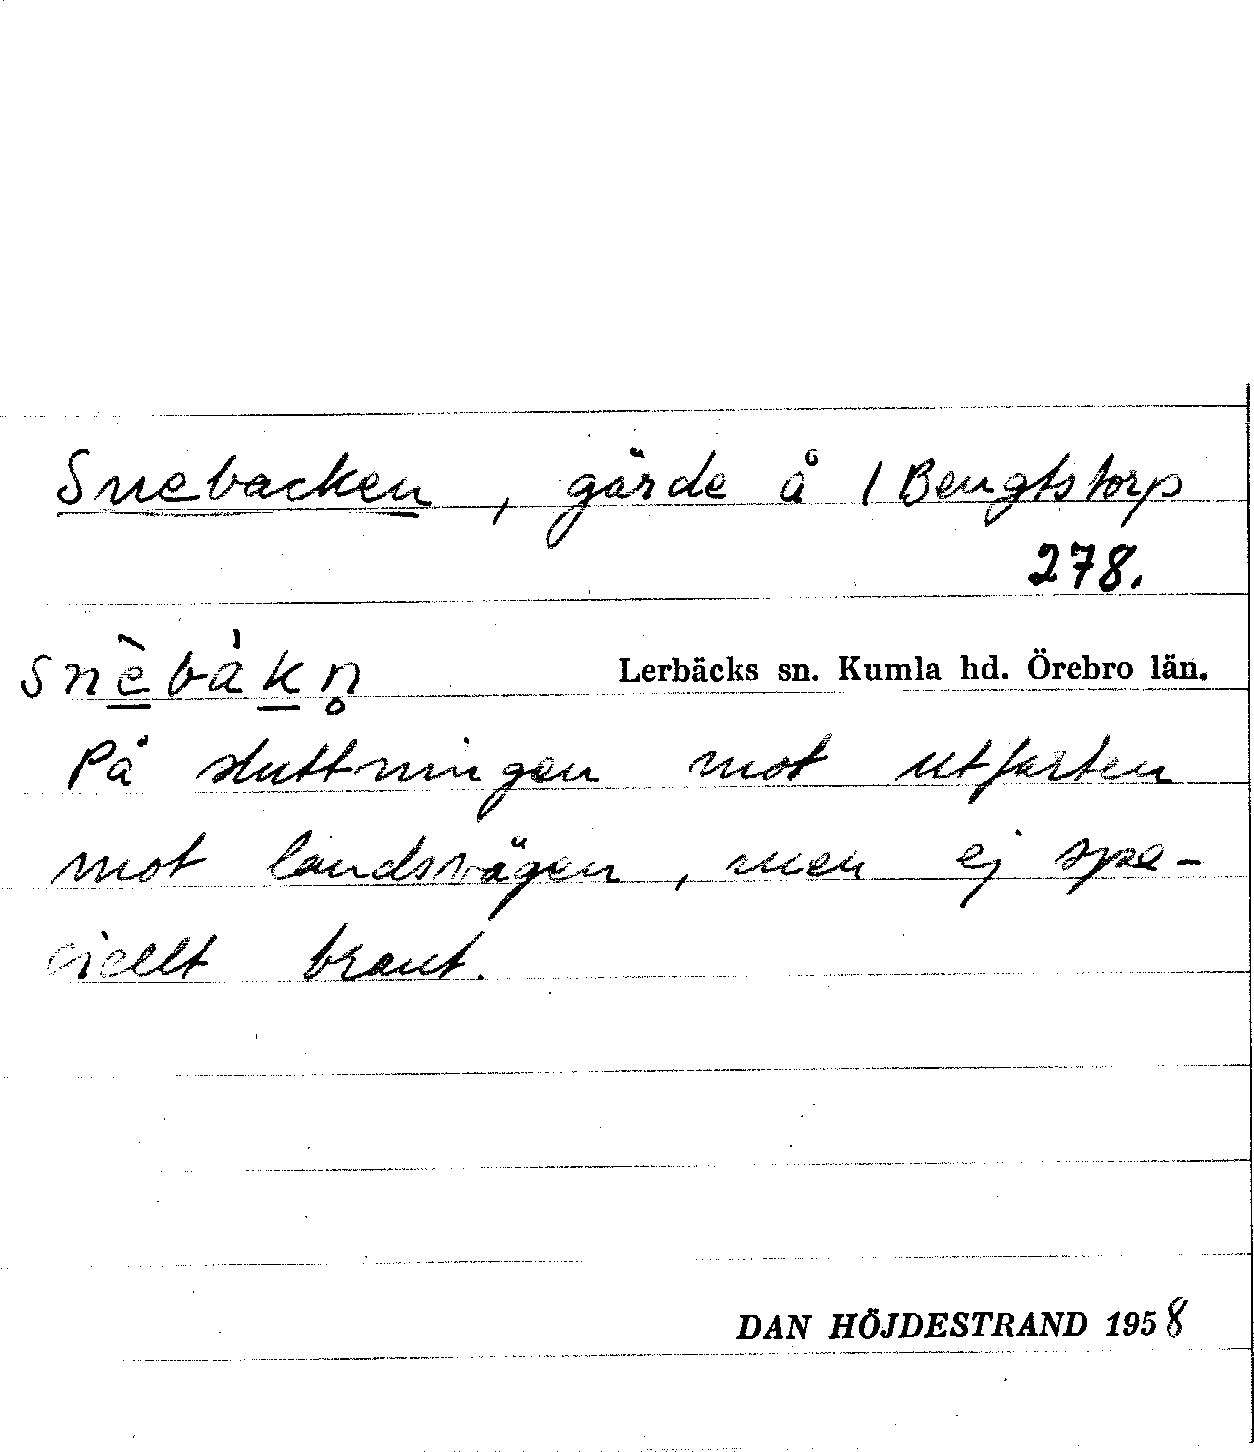 Snebacken, gärde å 1 Bengtstorp
278.
snè̲bàk̲n̥ Lerbäcks sn. Kumla hd. Örebro län.
På sluttningen mot utfarten
mot landsvägen, men ej spe-
ciellt brant.
DAN HÖJDESTRAND 1958